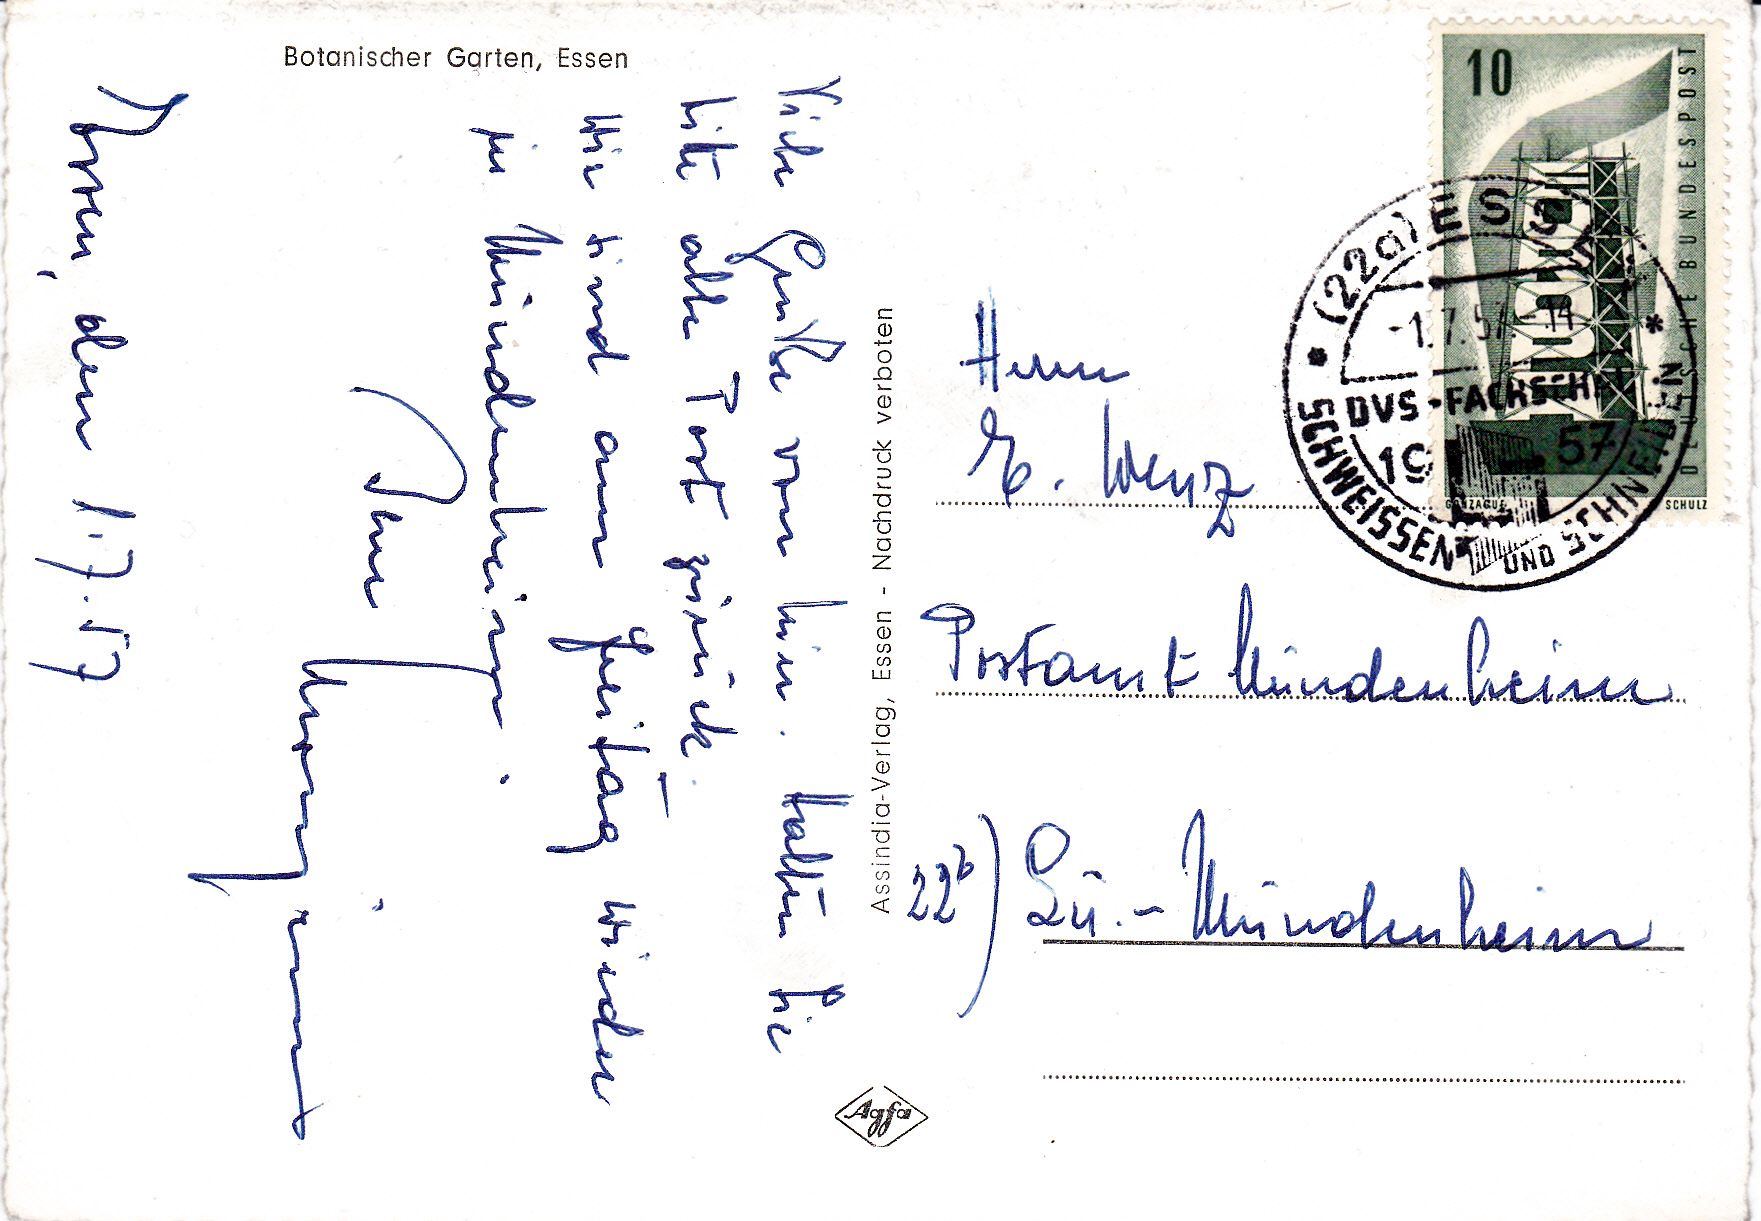 Botanischer Garten, Essen
Essen, den 1.7.57
Viele Grüße von hier. Halten Sie
bitte alle Post zurück.
Wir sind am Freitag wieder
in Mundenheim.
Ihr
Assindia-Verlag, Essen - Nachdruck verboten
Agfa
10
DEUTSCHE BUNDESPOST
GONZAGUE
SCHULZ
EUROPA
(22a) ESSEN
-1.7.57-14
DVS-FACHSCHAU
1957
SCHWEISSEN UND SCHNEIDEN
Herrn
E. Wenz
Postamt Mundenheim
22b) Lu.- Mundenheim